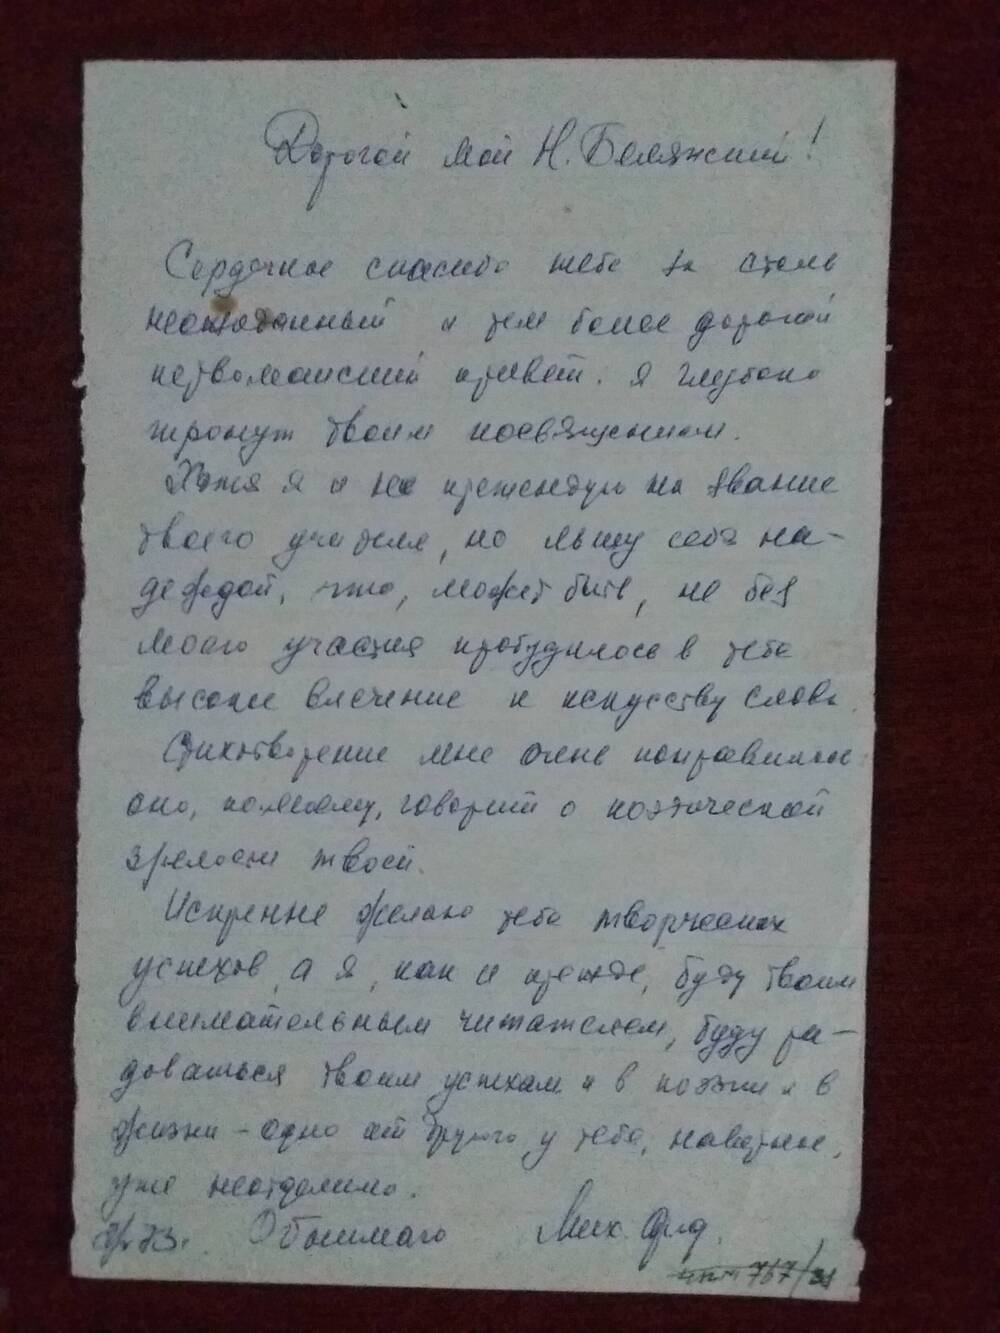 Дорогой мой Н. Белянский!
Сердечное спасибо тебе за столь
неожиданный и тем более дорогой
первомайский привет. Я глубоко
тронут твоим посвящением.
Хотя я и не претендую на звание
твоего учителя, но льщу себя на-
деждой, что, может быть, не без
моего участия пробудилось в тебе
высокое влечение к искусству слова.
Стихотворение мне очень понравилось
оно, по-моему, говорит о поэтической
зрелости твоей.
Искренне желаю тебе творческих
успехов, а я, как и прежде, буду твоим
внимательным читателем, буду ра-
доваться твоим успехам и в поэзии и в
жизни – одно от другого у тебя, наверное,
уже неотделимо.
73г. Обнимаю Мих.
767/31